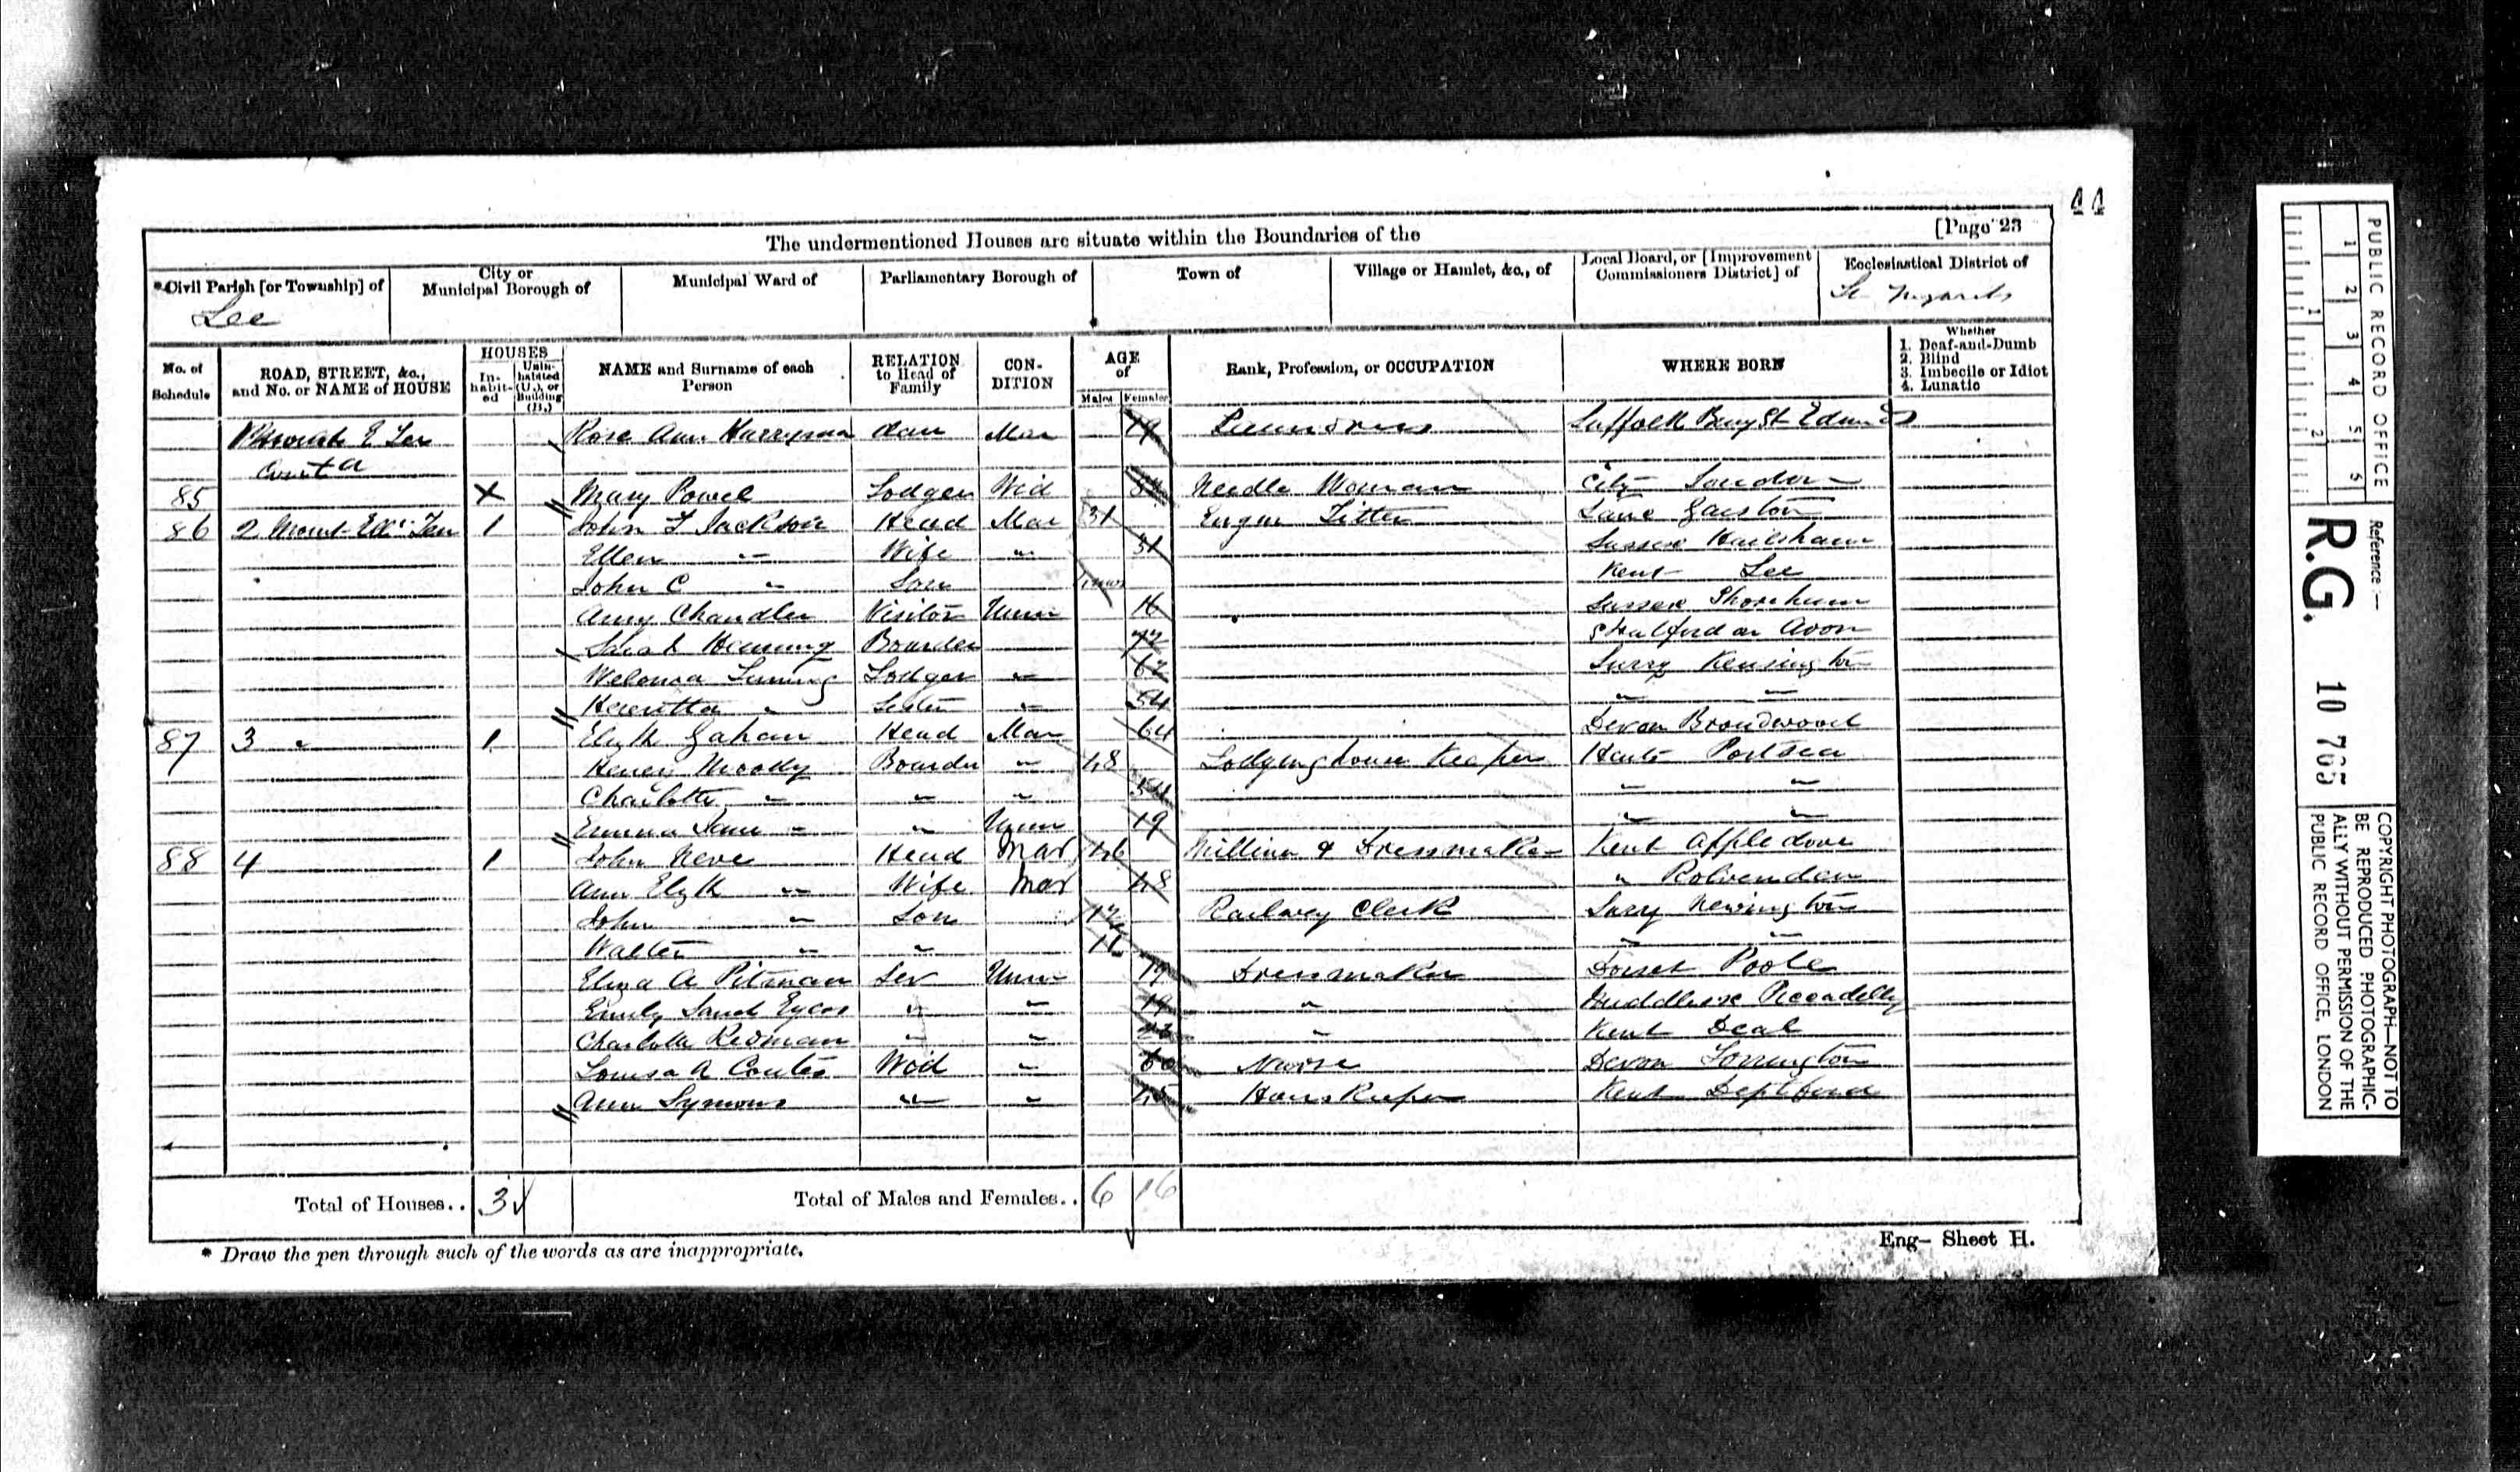 44
[Page 23
The undermentioned Houses are situate within the Boundaries of the
*Civil Parish [or Township] of
City or Municipal Borough of
Municipal Ward of
Parliamentary Borough of
Town of
Village or Hamlet, &c., of
Local Board, or [Improvement Commissioners District] of
Ecclesiastical District of
Lee
St
No. of Schedule
ROAD, STREET, &c., and No. or NAME of HOUSE
HOUSES
In-habit-ed
Unin-habited (U.), or Building (B.)
NAME and Surname of each Person
RELATION to Head of Family
CON-DITION
AGE of
Males
Females
Rank, Profession, or OCCUPATION
WHERE BORN
Whether
1. Deaf-and-Dumb
2. Blind
3. Imbecile or Idiot
4. Lunatic
Rose Ann Harryman Mar 19 Laundress Suffolk Bury St Edmds
85 X Mary Powel Lodger Wid Needle Woman City London
86 2 Mount 1 John F Jackson Head Mar 31 Engin Fitter
Ellen " Wife " 31 Sussex Hailsham
John C " Son Kent Lee
Amy Chandler Visitor Unm 16 Sussex Shoreham
Sarah Boarder 72 Stratford on Avon
Lodger " 62 Surry Kensington
Henrietta " Sister " 54 " "
87 3 " 1 Elizth Gahan Head Mar 64 Devon Broadwood
Henry Moody Boarder " 48 Lodging house Keeper Hants Portsea
Charlotte " " " 54 " "
Emma Jane " " Unm 19 " "
88 4 1 John Neve Head Mar 46 Milliner & Dressmaker Kent Appledore
Ann Elizth " Wife Mar 48 " Rolvenden
John " Son 17 Railway Clerk Surry Newington
Walter " " 11 " "
Eliza A Pitman Ser Unm 19 Dressmaker Dorset Poole
Emily Sarah Eyles " " 19 " Middlesex Piccadilly
Charlotte Redman " " " Kent Deal
Louisa A Coutes Wid " 60 Nurse Devon Torrington
Ann Symons " " 45 Hous Keeper Kent Deptford
Total of Houses.. 3
Total of Males and Females.. 6 16
* Draw the pen through such of the words as are inappropriate.
Eng— Sheet H.
PUBLIC RECORD OFFICE
1 2 3 4 5 6
1 2
Reference :—
R.G. 10 765
COPYRIGHT PHOTOGRAPH—NOT TO
BE REPRODUCED PHOTOGRAPHIC-
ALLY WITHOUT PERMISSION OF THE
PUBLIC RECORD OFFICE, LONDON